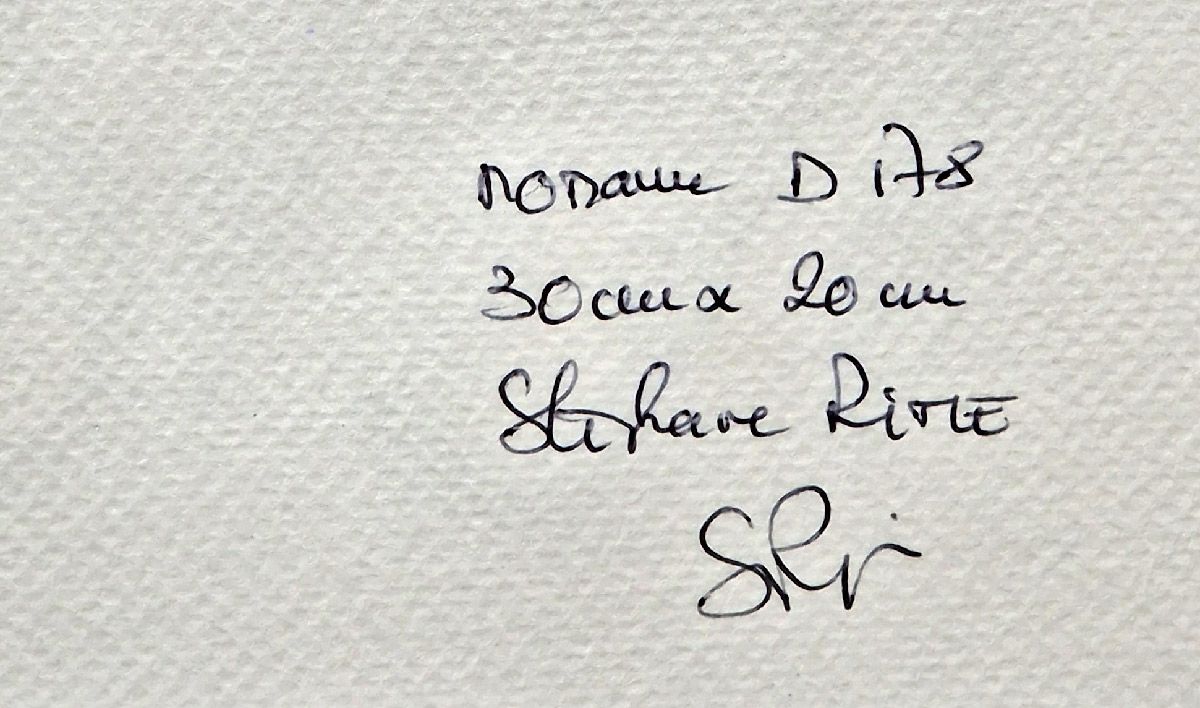 MODame D 178
30cm x 20 cm
Stephane RiTTE